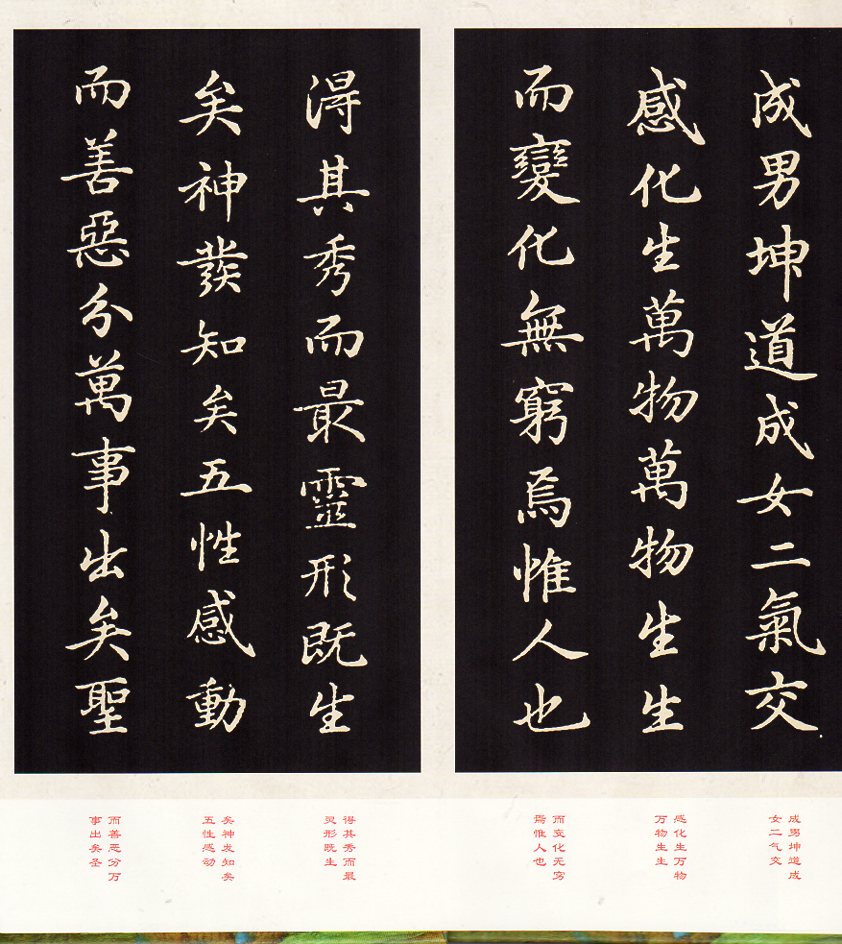 成男坤道成女二氣交
感化生萬物萬物生生
而變化無窮焉惟人也
得其秀而最靈形既生
矣神發知矣五性感動
而善惡分萬事出矣聖
成男坤道成
女二气交
感化生万物
万物生生
而变化无穷
焉惟人也
得其秀而最
灵形既生
矣神发知矣
五性感动
而善恶分万
事出矣圣